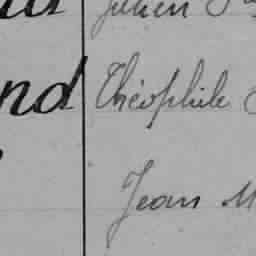 Julien
nd Théophile
Jean M